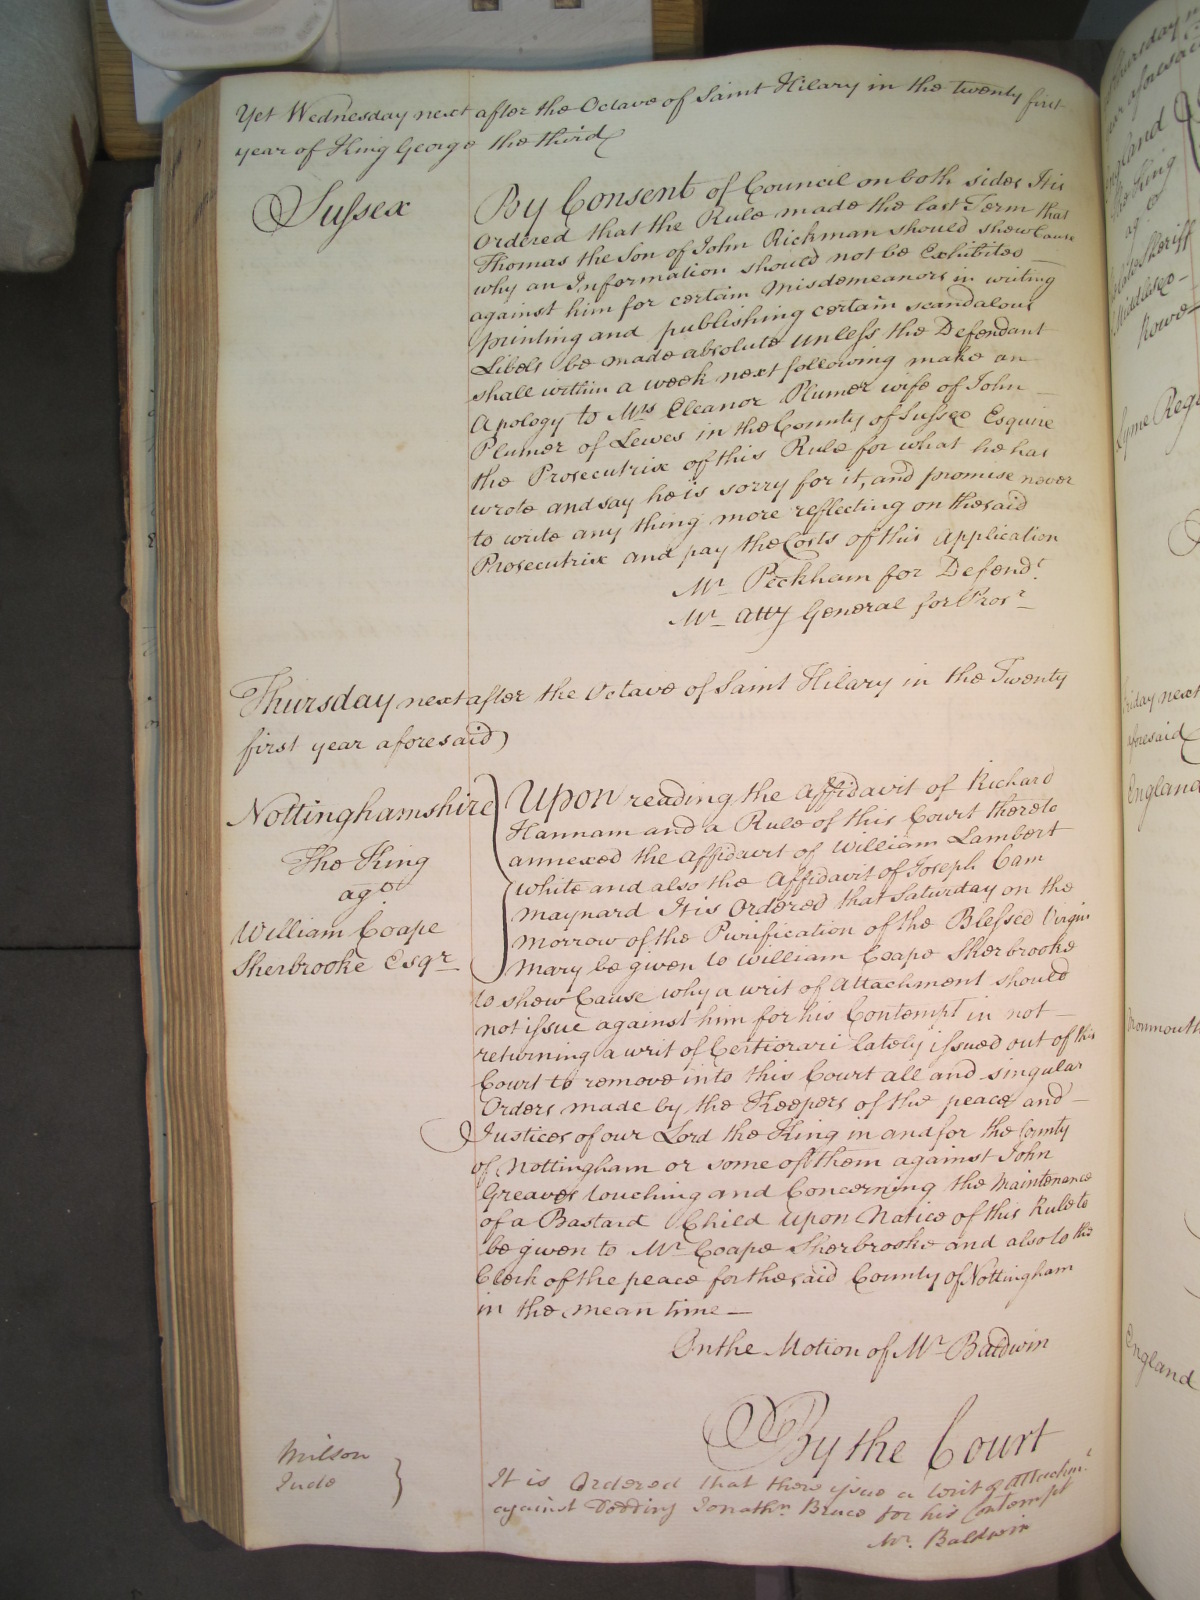 Yet Wednesday next after the Octave of Saint Hilary in the twenty first
year of King George the third
Sussex
By Consent of Council on both sides It is
Ordered that the Rule made the last Term that
Thomas the Son of John Rickman should shew Cause
why an Information should not be Exhibited
against him for certain Misdemeanors in writing
printing and publishing certain scandalous
Libels be made absolute unless the Defendant
shall within a week next following make an
Apology to Mrs Eleanor Plumer wife of John
Plumer of Lewes in the County of Sussex Esquire
the Prosecutrix of this Rule for what he has
wrote and say he is sorry for it, and promise never
to write any thing more reflecting on the said
Prosecutrix and pay the Costs of this Application
Mr Peckham for Defendt.
Mr Atty General for Prosr
Thursday next after the Octave of Saint Hilary in the Twenty
first year aforesaid
Nottinghamshire
The King
agst
William Coape
Sherbrooke Esqr
Upon reading the Affidavit of Richard
Hannam and a Rule of this Court thereto
annexed the Affidavit of William Lambert
White and also the Affidavit of Joseph Cam
Maynard It is Ordered that Saturday on the
Morrow of the Purification of the Blessed Virgin
Mary be given to William Coape Sherbrooke
to shew Cause why a writ of Attachment should
not issue against him for his Contempt in not
returning a writ of Certiorari lately issued out of this
Court to remove into this Court all and singular
Orders made by the Keepers of the peace and
Justices of our Lord the King in and for the County
of Nottingham or some of them against John
Greaves touching and Concerning the Maintenance
of a Bastard Child Upon Notice of this Rule to
be given to Mr Coape Sherbrooke and also to the
Clerk of the peace for the said County of Nottingham
in the mean time
On the Motion of Mr Baldwin
By the Court
Milson
Inde
It is Ordered that there issue a writ of Attachmt
against Jonathn Bruce for his Contempt
Mr. Baldwin
England
The King
agt
Sheriff
Middlesex
Rowe
Lyme Regi
Friday next
aforesaid
England
Monmouth
England